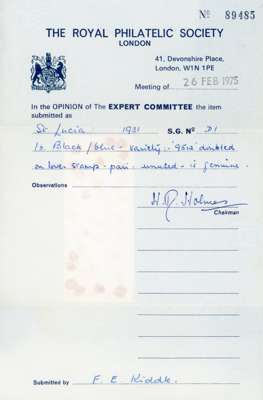 No 89485
THE ROYAL PHILATELIC SOCIETY
LONDON
41, Devonshire Place,
London, W1N 1PE
Meeting of 26 FEB 1975
In the OPINION of The EXPERT COMMITTEE the item
submitted as
St Lucia 1931 S.G. No D1
1d Black/blue - variety: - "No 12" doubled
on lower stamp - pair - unused - is genuine.
Observations
H.R. Holmes
Chairman
Submitted by F. E. Kiddle.